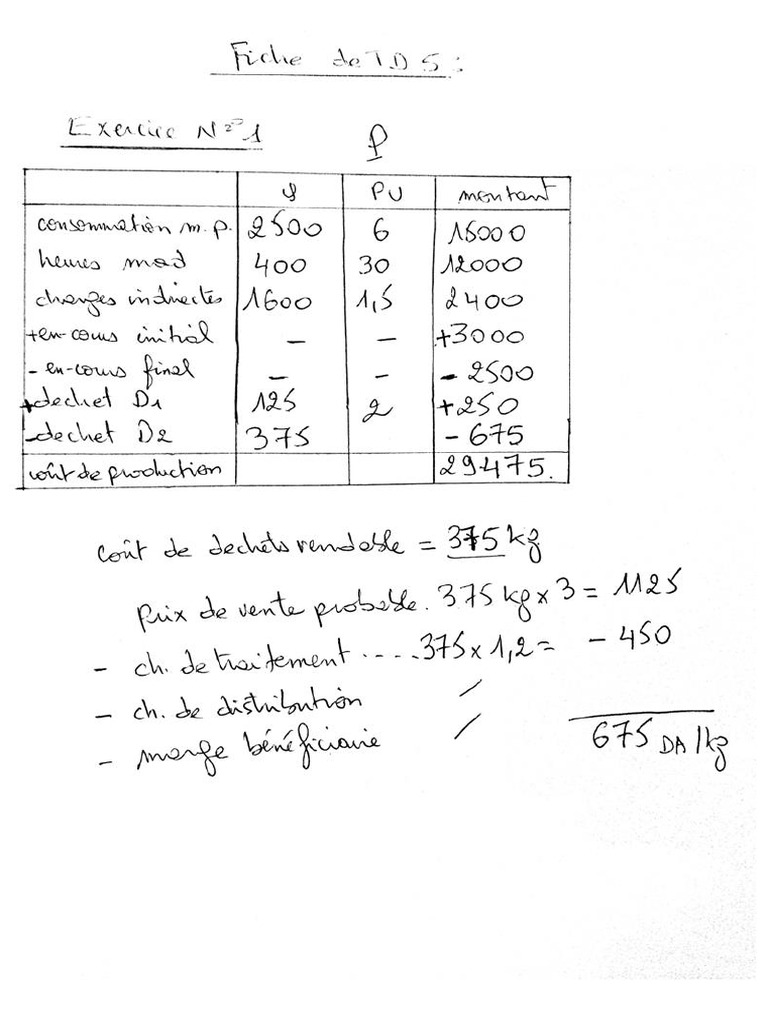 Fiche de T.D 5 :
Exercice N=° 1
P
Q PU montant
consommation m.p. 2500 6 15000
heures mod 400 30 12000
charges indirectes 1600 1,5 2400
+en-cours initial - - +3000
- en-cours final - - - 2500
+dechet D1 125 2 +250
-dechet D2 375 - 675
coût de production 29475.
coût de dechets vendable = 375 kg
prix de vente probable. 375 kg x 3 = 1125
- ch. de traitement ....375 x 1,2 = - 450
- ch. de distribution /
- marge bénéficiaire / 675 DA/kg